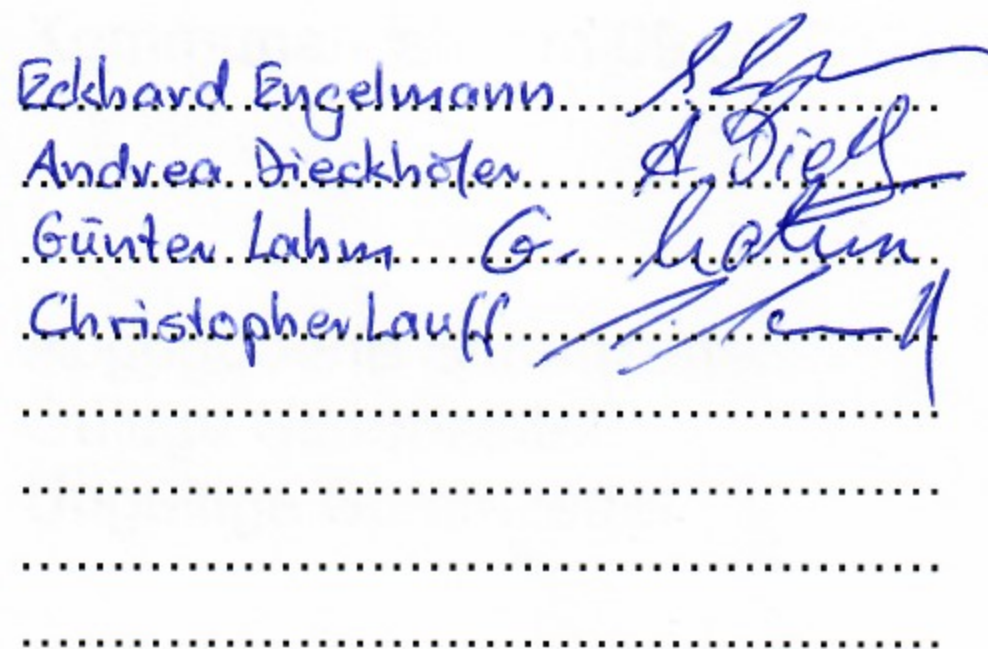 Eckhard Engelmann
Andrea Dieckhöfer A. Die
Günter Lahm G. Lahm
Christopher Lauff